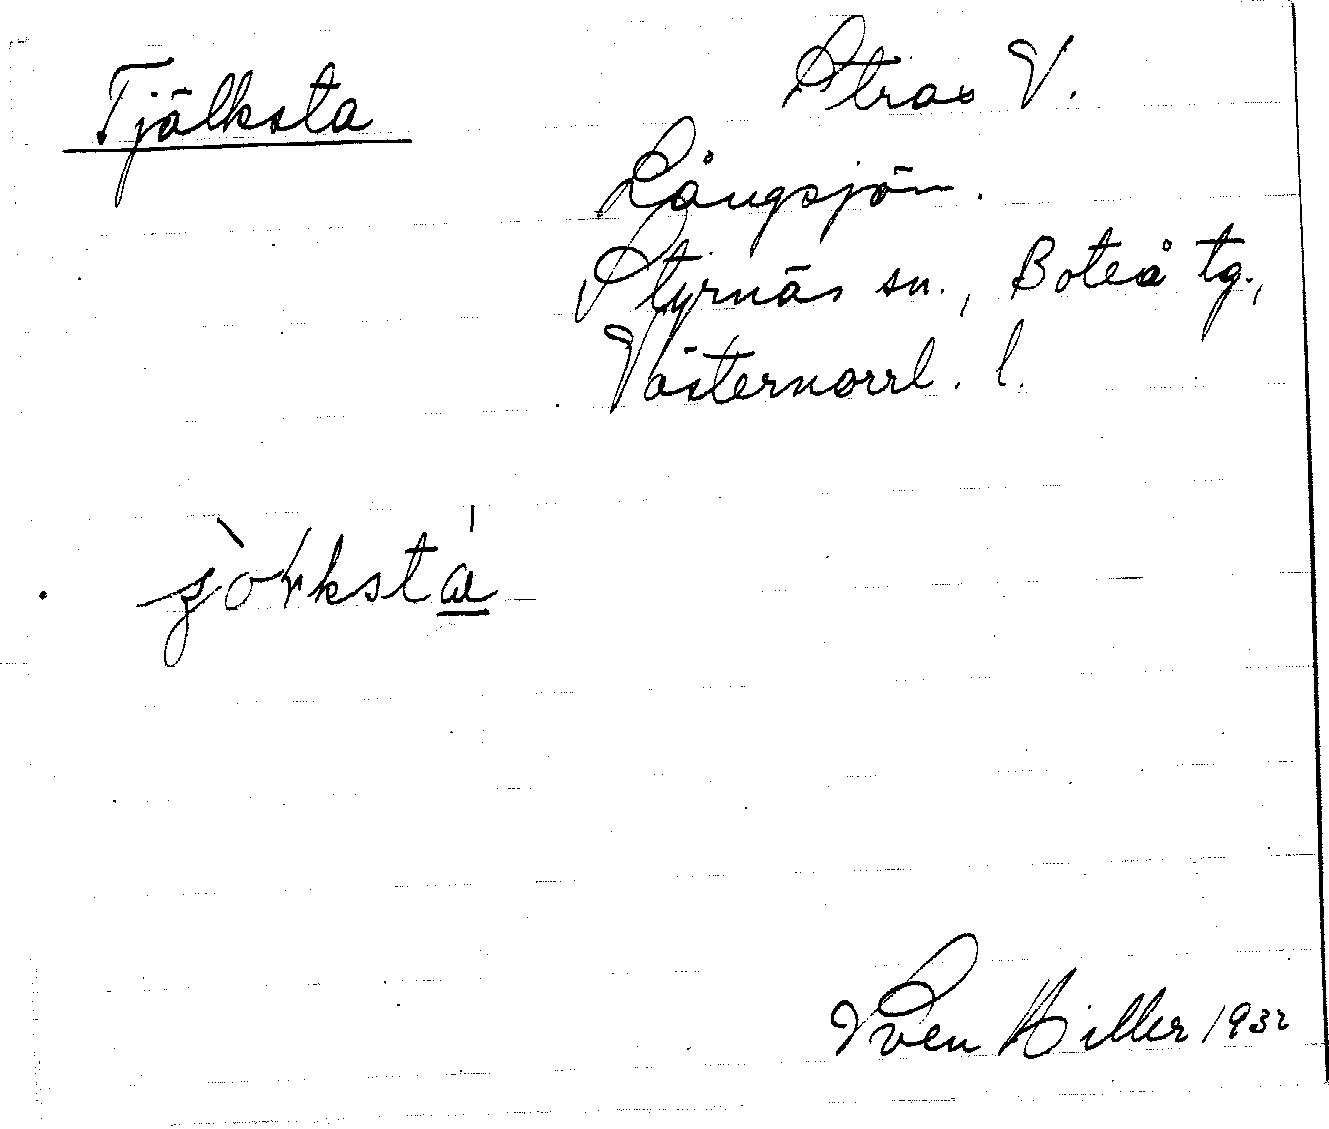 Tjälksta
Strax V.
Långsjön.
Styrnäs sn., Boteå tg.,
Västernorrl. l.
Sven Hiller 1932